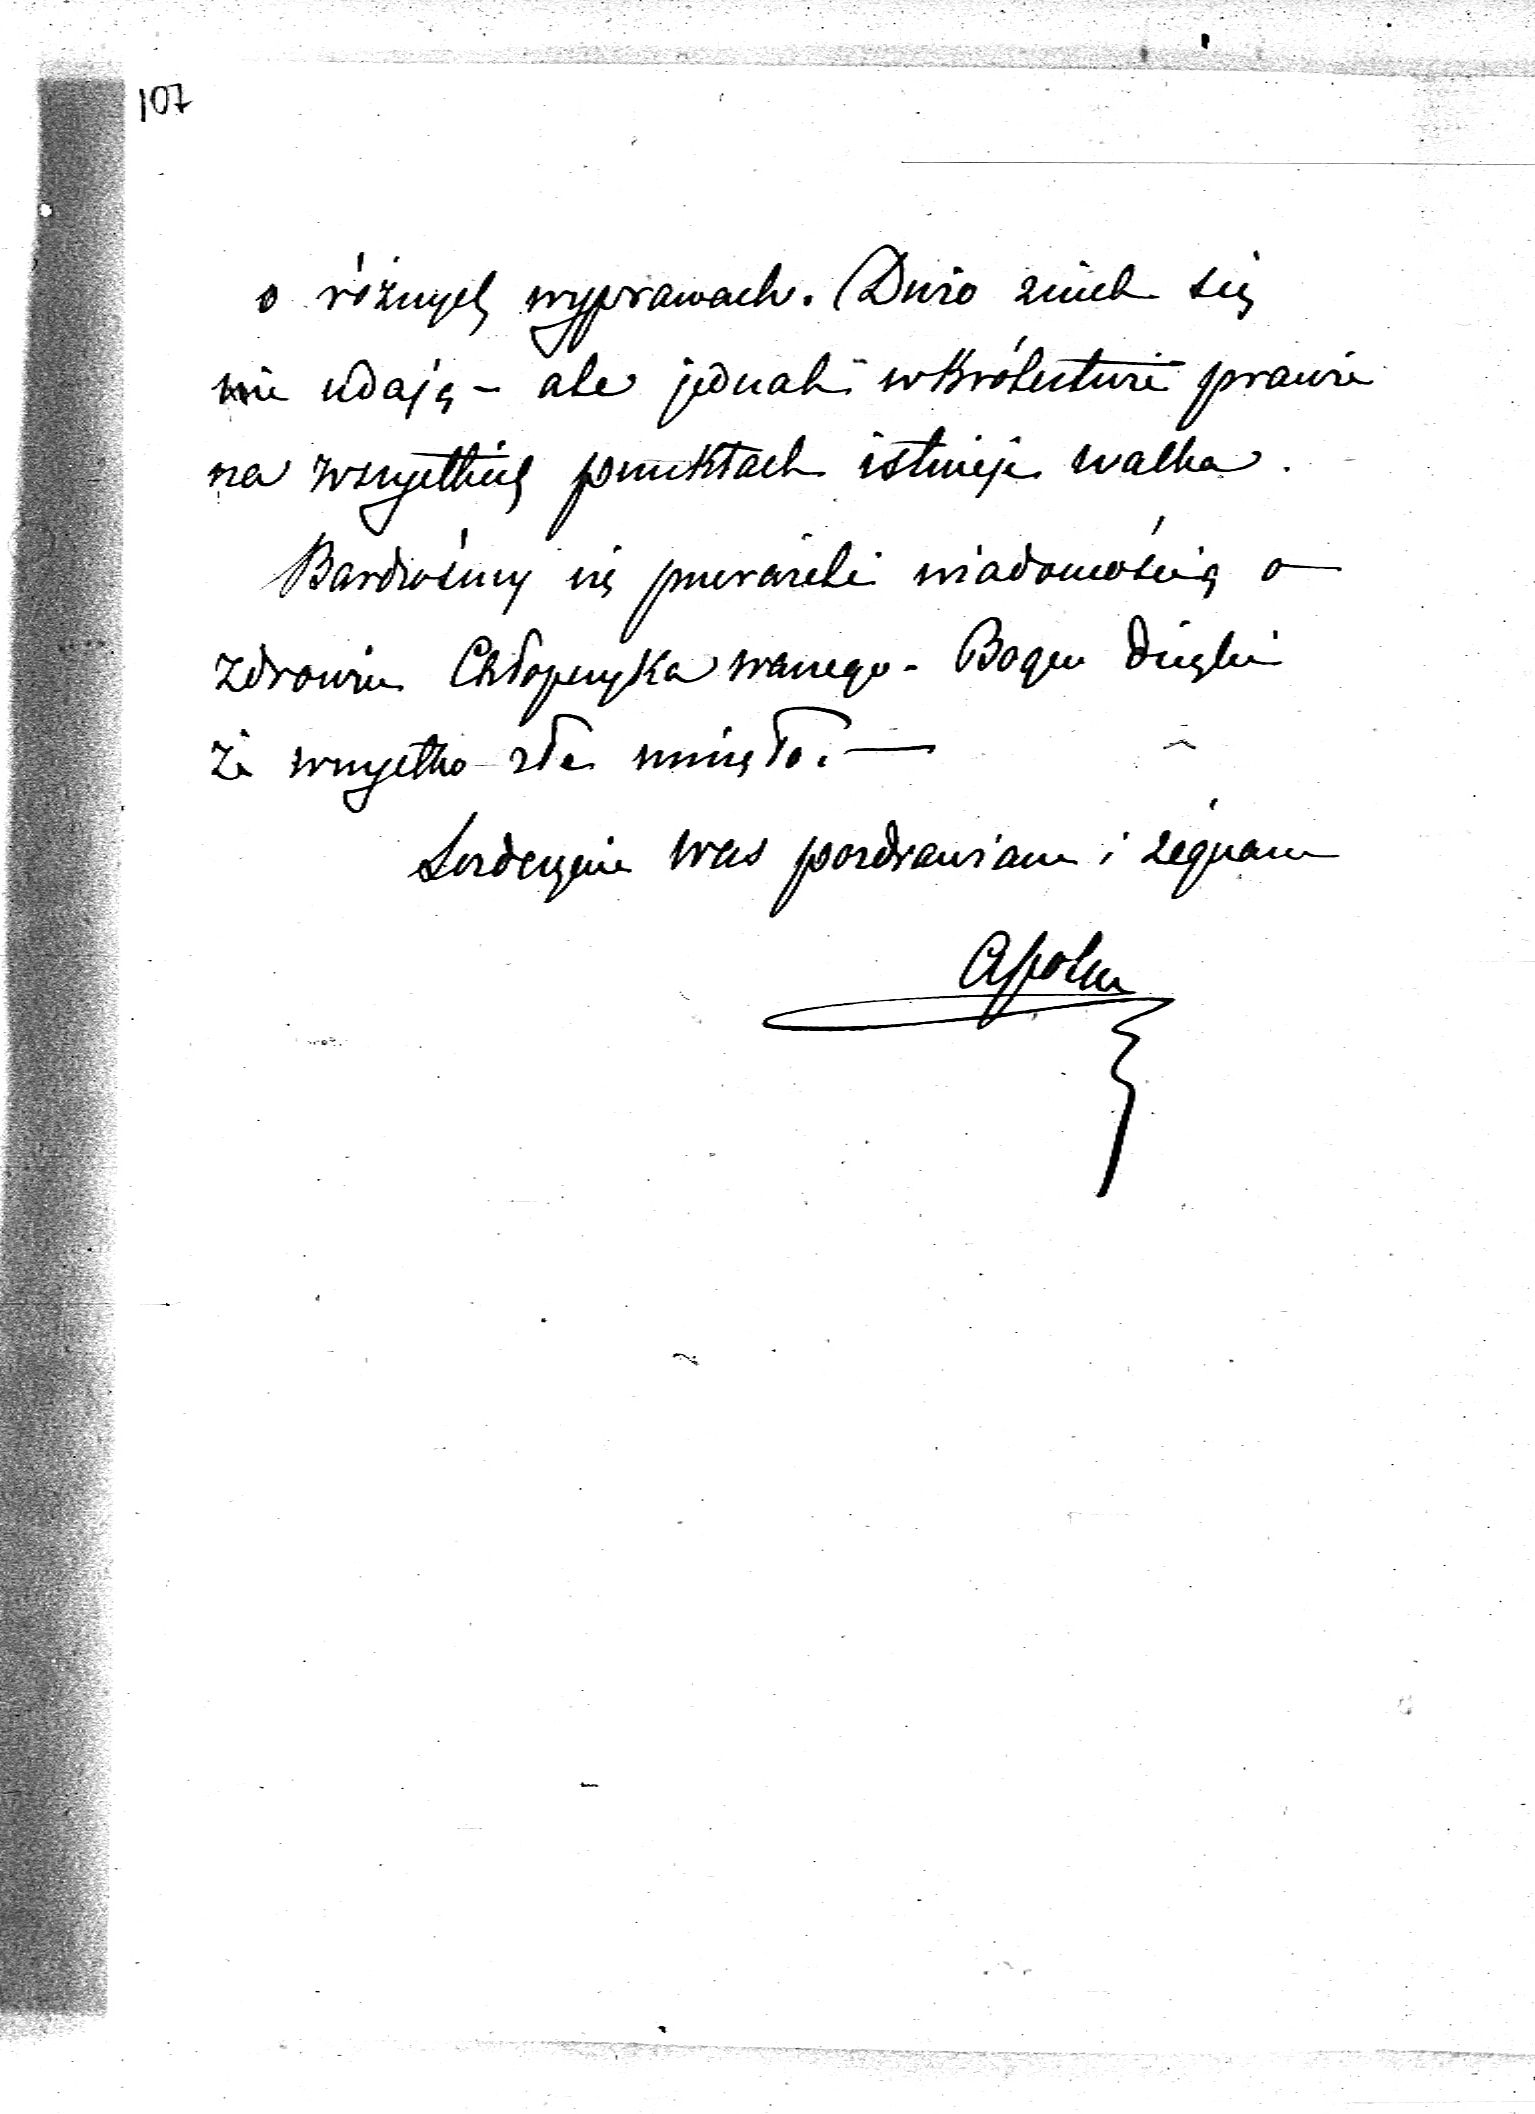 107
o różnych wyprawach. Dużo z nich się
nie udają - ale jednak w Królestwie prawie
na wszystkich punktach istnieje walka.
Bardzośmy się przeraziли wiadomością o
zdrowiu Chłopczyka waszego - Bogu dzięki
że wszystko złe minęło. —
Serdecznie Was pozdrawiam i żegnam